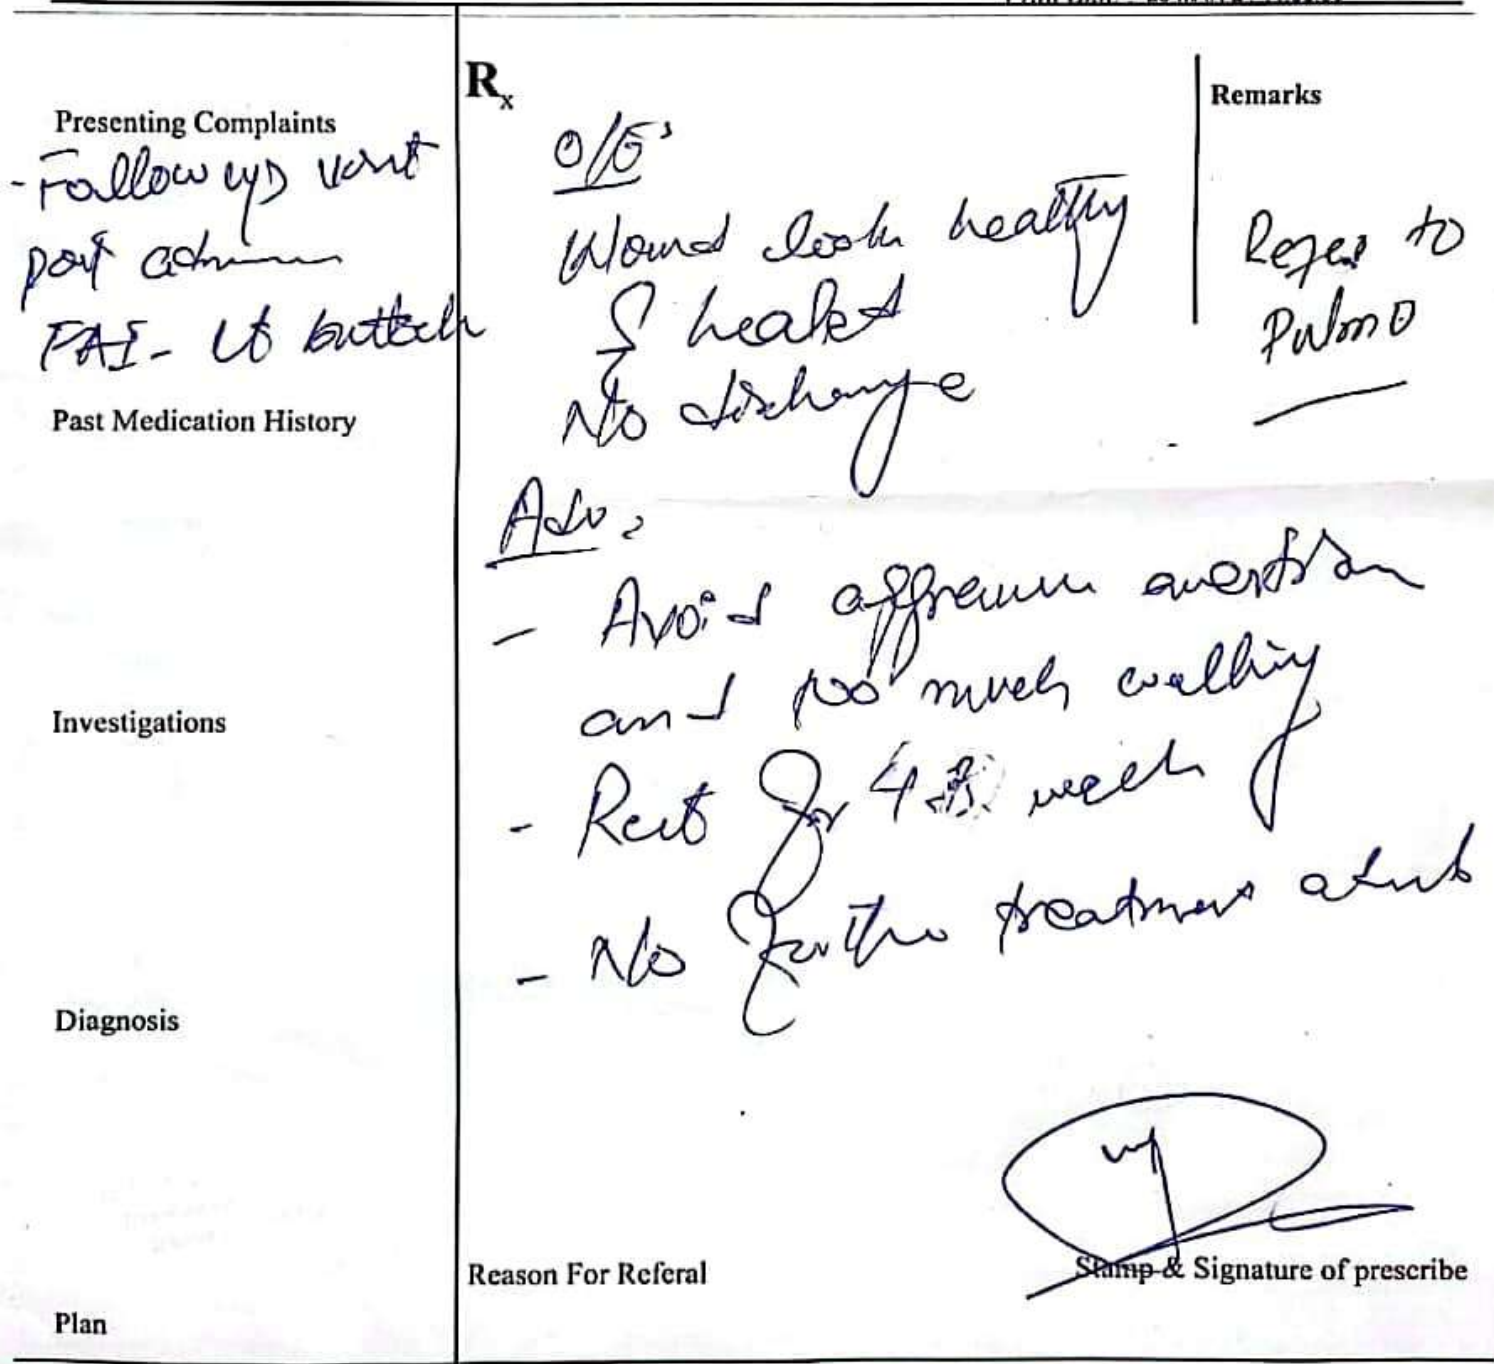 Rx
Presenting Complaints
- Follow up visit
post
FAI - Lt buttock
Past Medication History
Investigations
Diagnosis
Plan
O/E:
Wound look healthy
& healed
No discharge
Adv:
- Avoid
and too much walking
- Rest for 4 week
- No further treatment
Remarks
Refer to
Pulmo
Reason For Referal
Stamp & Signature of prescribe